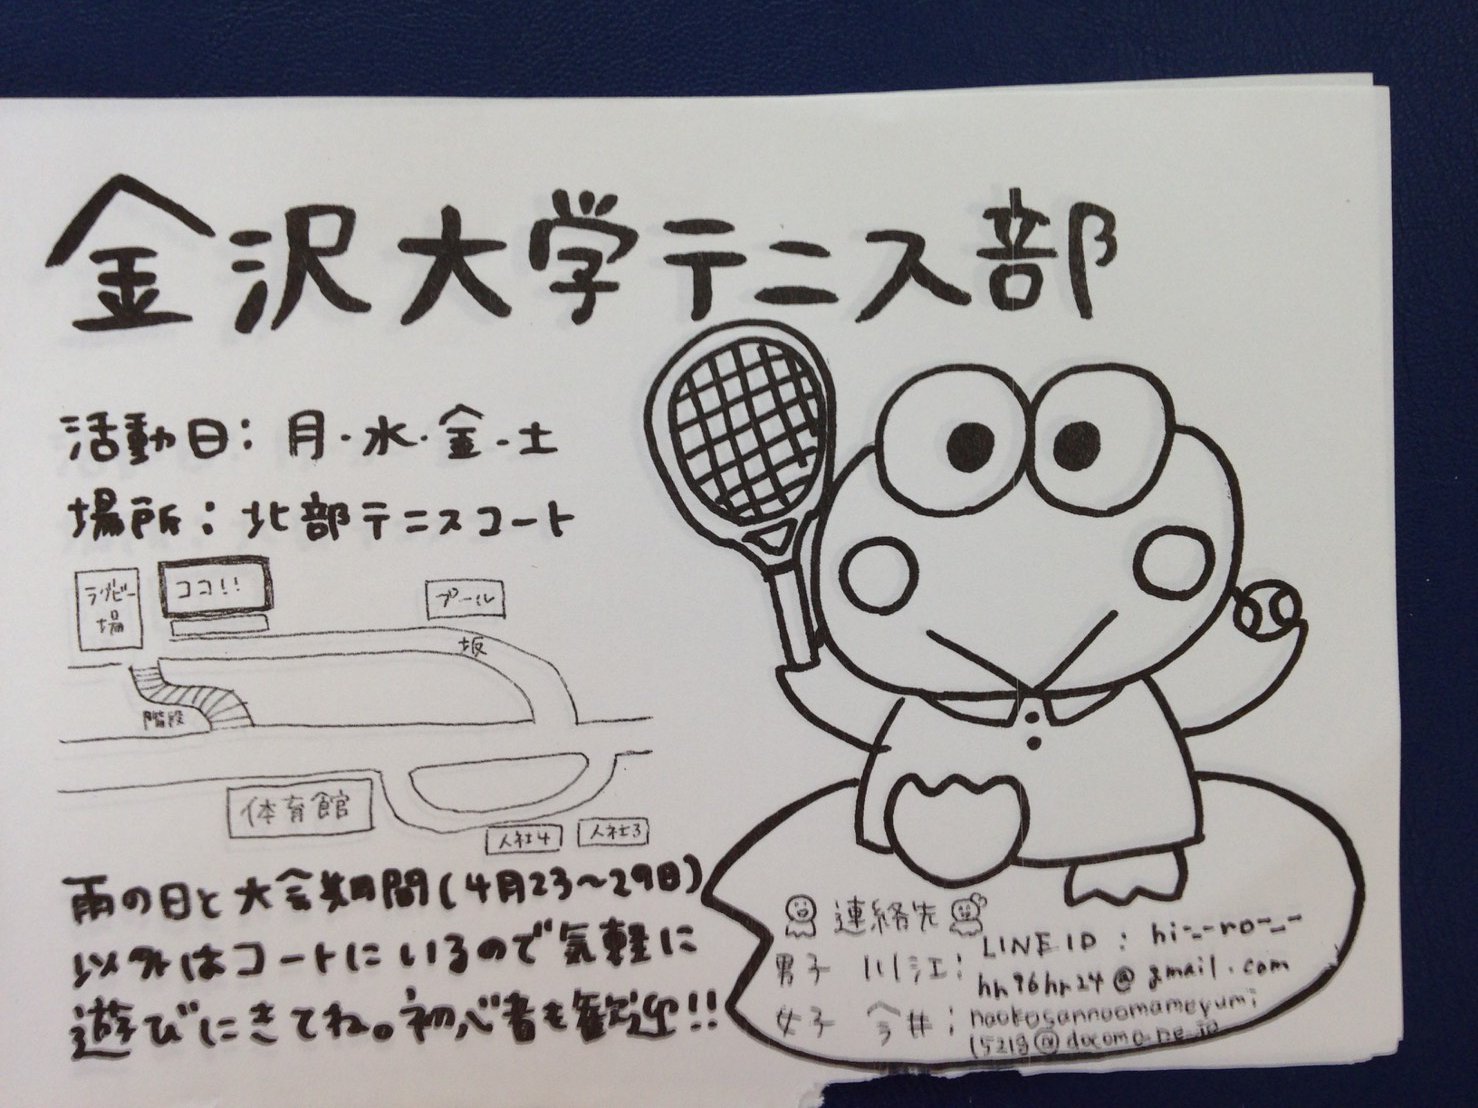 金沢大学テニス部
活動日：月・水・金・土
場所：北部テニスコート
ラグビー場
ココ!!
プール
坂
階段
体育館
人社4
人社3
雨の日と大会期間(4月23～29日)
以外はコートにいるので気軽に
遊びにきてね。初心者も歓迎!!
連絡先
男子 川江：LINE ID：
hr96hr24@gmail.com
女子 今井：
15218@docomo.ne.jp